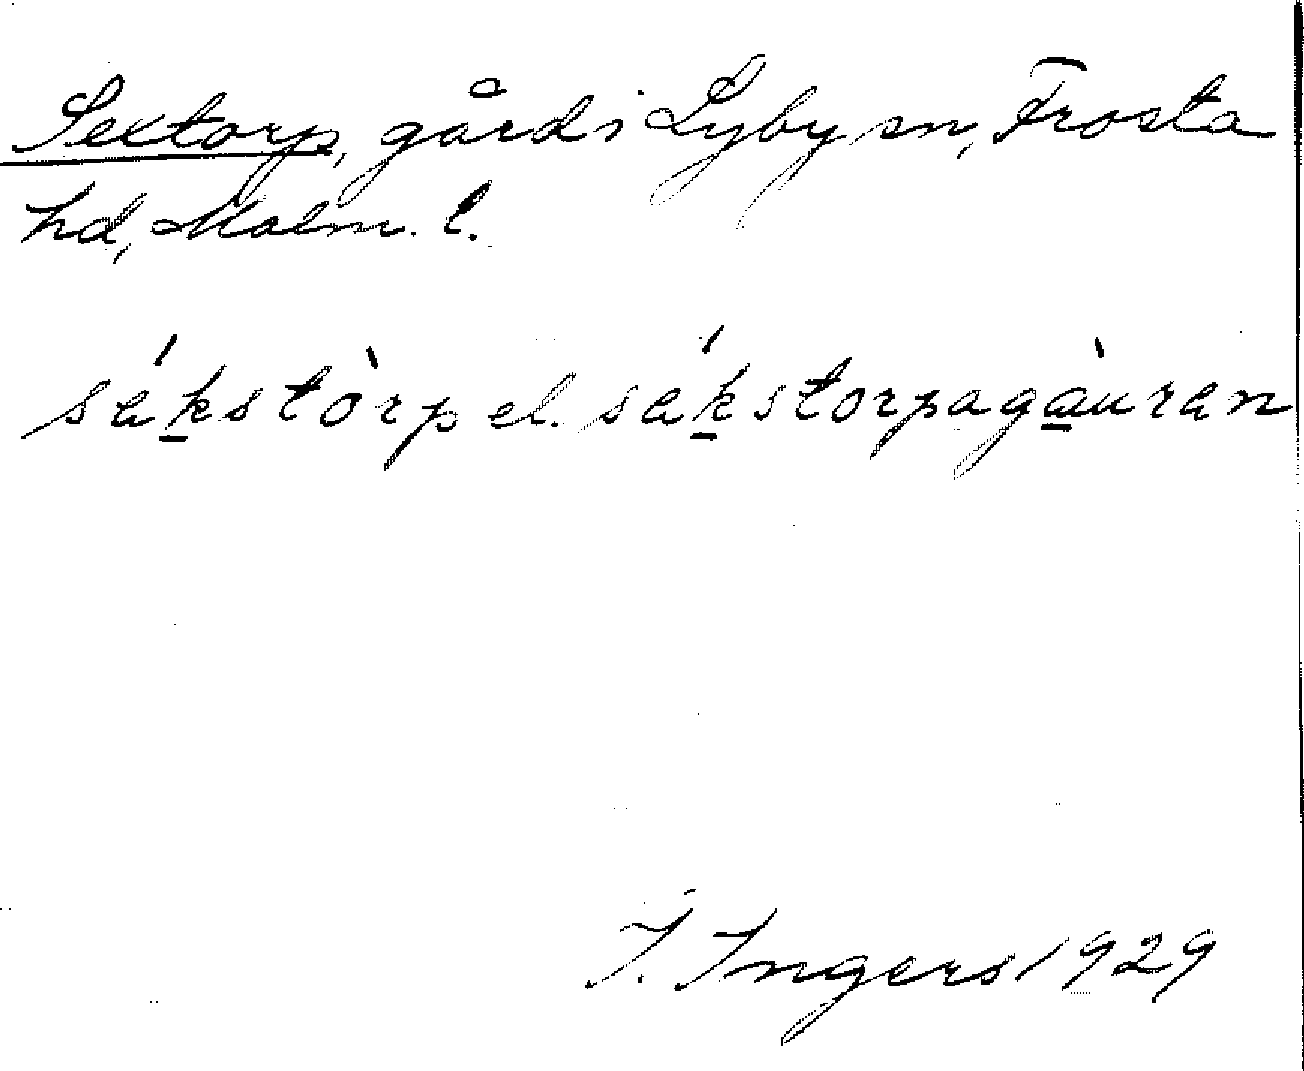 Sextorp, gård i Lyby sn, Frosta
hd, Malm. l.
sáḵstòrp el. sáḵstorpagà̱uran
I. Ingers 1929